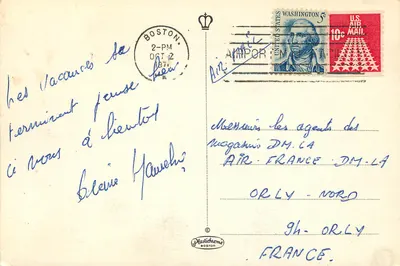 BOSTON
2-PM
OCT 2
UNITED STATES
WASHINGTON 5¢
U.S.
AIR MAIL
10¢
AIR MAIL
Les vacances se
terminent pense bien
à vous à bientôt
Messieurs les agents des
magasins DM.LA
AIR-FRANCE-DM-LA
ORLY-NORD
94-ORLY
FRANCE.
Plastichrome
BOSTON